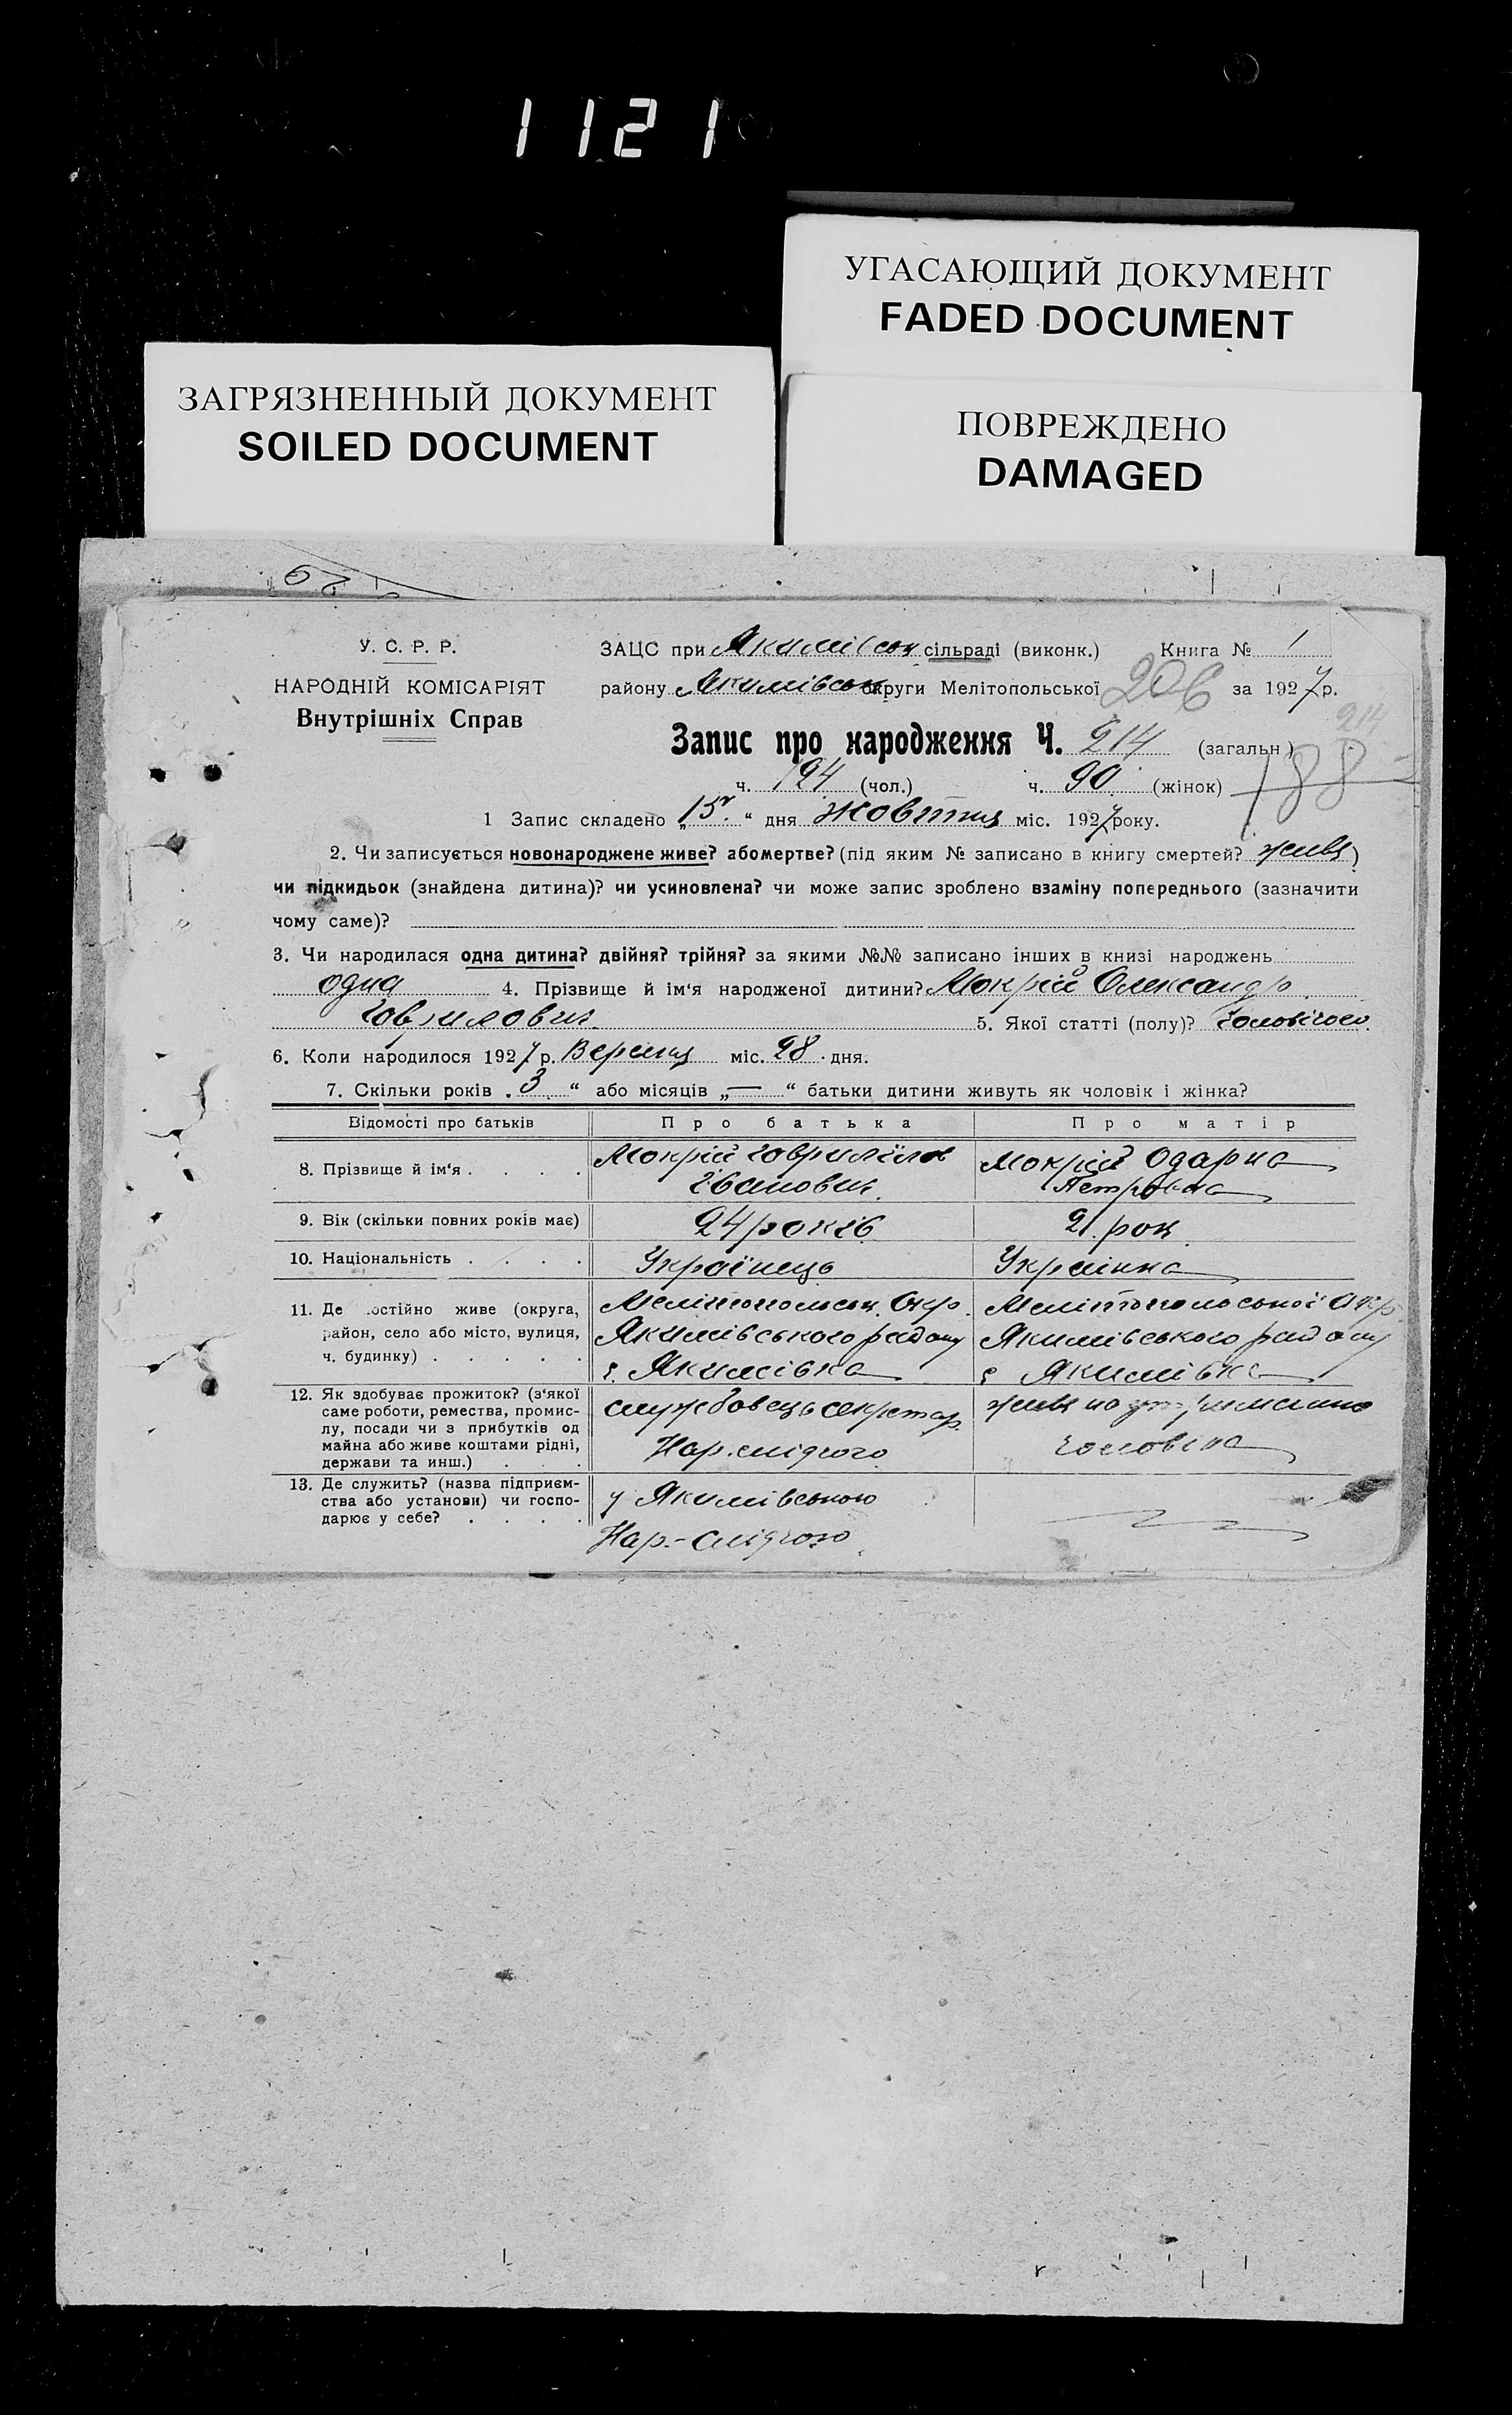 1121
УГАСАЮЩИЙ ДОКУМЕНТ
FADED DOCUMENT
ЗАГРЯЗНЕННЫЙ ДОКУМЕНТ
SOILED DOCUMENT
ПОВРЕЖДЕНО
DAMAGED
У. С. Р. Р.
НАРОДНІЙ КОМІСАРІЯТ
Внутрішніх Справ
ЗАЦС при Якимівськ сільраді (виконк.) Книга № 1
району Якимівськ округи Мелітопольської 206 за 1927 р.
214
Запис про народження Ч. 214 (загальн.)
188
ч. 124 (чол.) ч. 90 (жінок)
1 Запис складено „15“ дня Жовтня міс. 1927 року.
2. Чи записується новонароджене живе? або мертве? (під яким № записано в книгу смертей? живе)
чи підкидьок (знайдена дитина)? чи усиновлена? чи може запис зроблено взаміну попереднього (зазначити
чому саме)?
3. Чи народилася одна дитина? двійня? трійня? за якими №№ записано інших в книзі народжень
одна 4. Прізвище й ім‘я народженої дитини? Мокрій Олександр
Гаврилович 5. Якої статті (полу)? Чоловічого
6. Коли народилося 1927 р. Вересня міс. 28 дня.
7. Скільки років „3“ або місяців „—“ батьки дитини живуть як чоловік і жінка?
Відомості про батьків Про батька Про матір
8. Прізвище й ім‘я . . . . Мокрій Гавриліло Мокрій Одарка
Іванович Петровна
9. Вік (скільки повних років має) 24 років 21 рок
10. Національність . . . . Українець Українка
11. Де постійно живе (округа, Мелітопольськ. Окр. Мелітопольської Окр
район, село або місто, вулиця, Якимівського району Якимівського району
ч. будинку) . . . . . с. Якимівка с Якимівка
12. Як здобуває прожиток? (з‘якої
саме роботи, ремества, промис- службовець секретар живе на утриманню
лу, посади чи з прибутків од
майна або живе коштами рідні, Нар.слідчого чоловіка
держави та инш.) . . .
13. Де служить? (назва підприєм-
ства або установи) чи госпо- у Якимівського
дарює у себе? . . . .
Нар.-слідчого